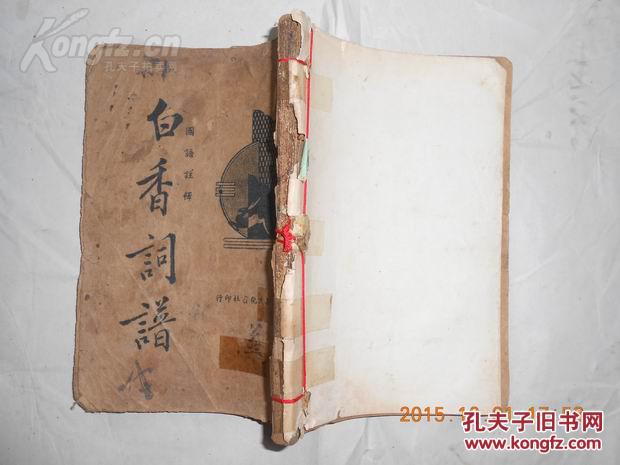 Kongfz.cn
孔夫子拍卖网
白香詞譜
國語註釋
社印行
2015.1
孔夫子旧书网
www.kongfz.com